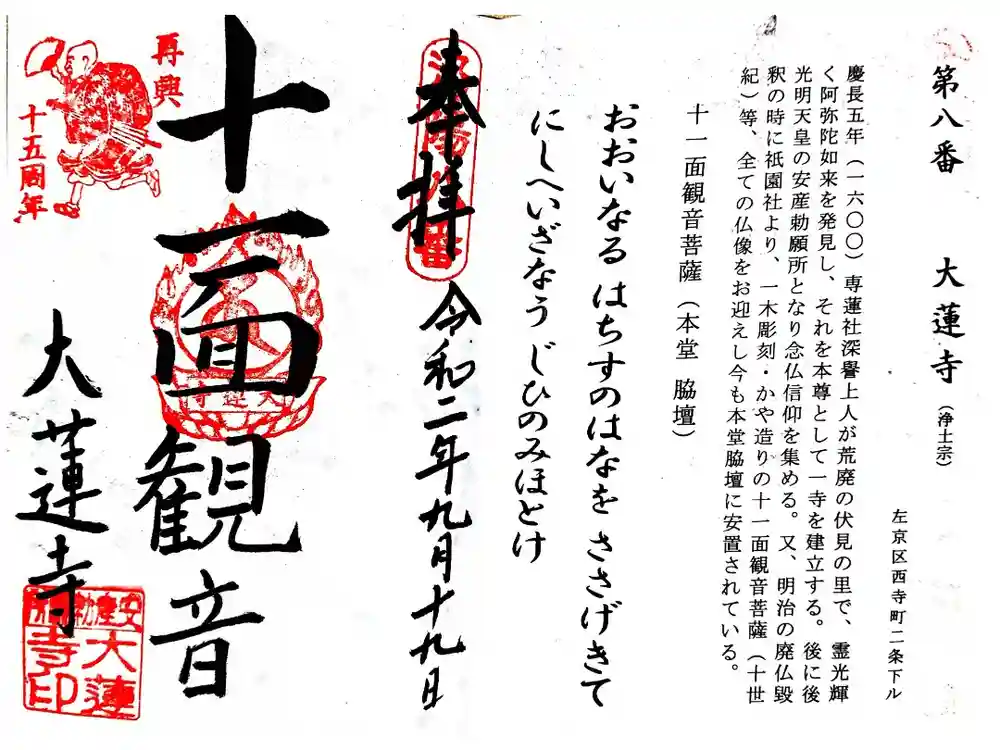 第八番 大蓮寺（浄土宗）
左京区西寺町二条下ル
慶長五年（一六〇〇）専蓮社深誉上人が荒廃の伏見の里で、霊光輝
く阿弥陀如来を発見し、それを本尊として一寺を建立する。後に後
光明天皇の安産勅願所となり念仏信仰を集める。又、明治の廃仏毀
釈の時に祇園社より、一木彫刻・かや造りの十一面観音菩薩（十世
紀）等、全ての仏像をお迎えし今も本堂脇壇に安置されている。
十一面観音菩薩（本堂 脇壇）
おおいなる はちすのはなを ささげきて
にしへいざなう じひのみほとけ
奉拝 令和二年九月十九日
十一面観音
大蓮寺
再興
十五周年
大蓮寺
安産勅願所
大蓮
寺印